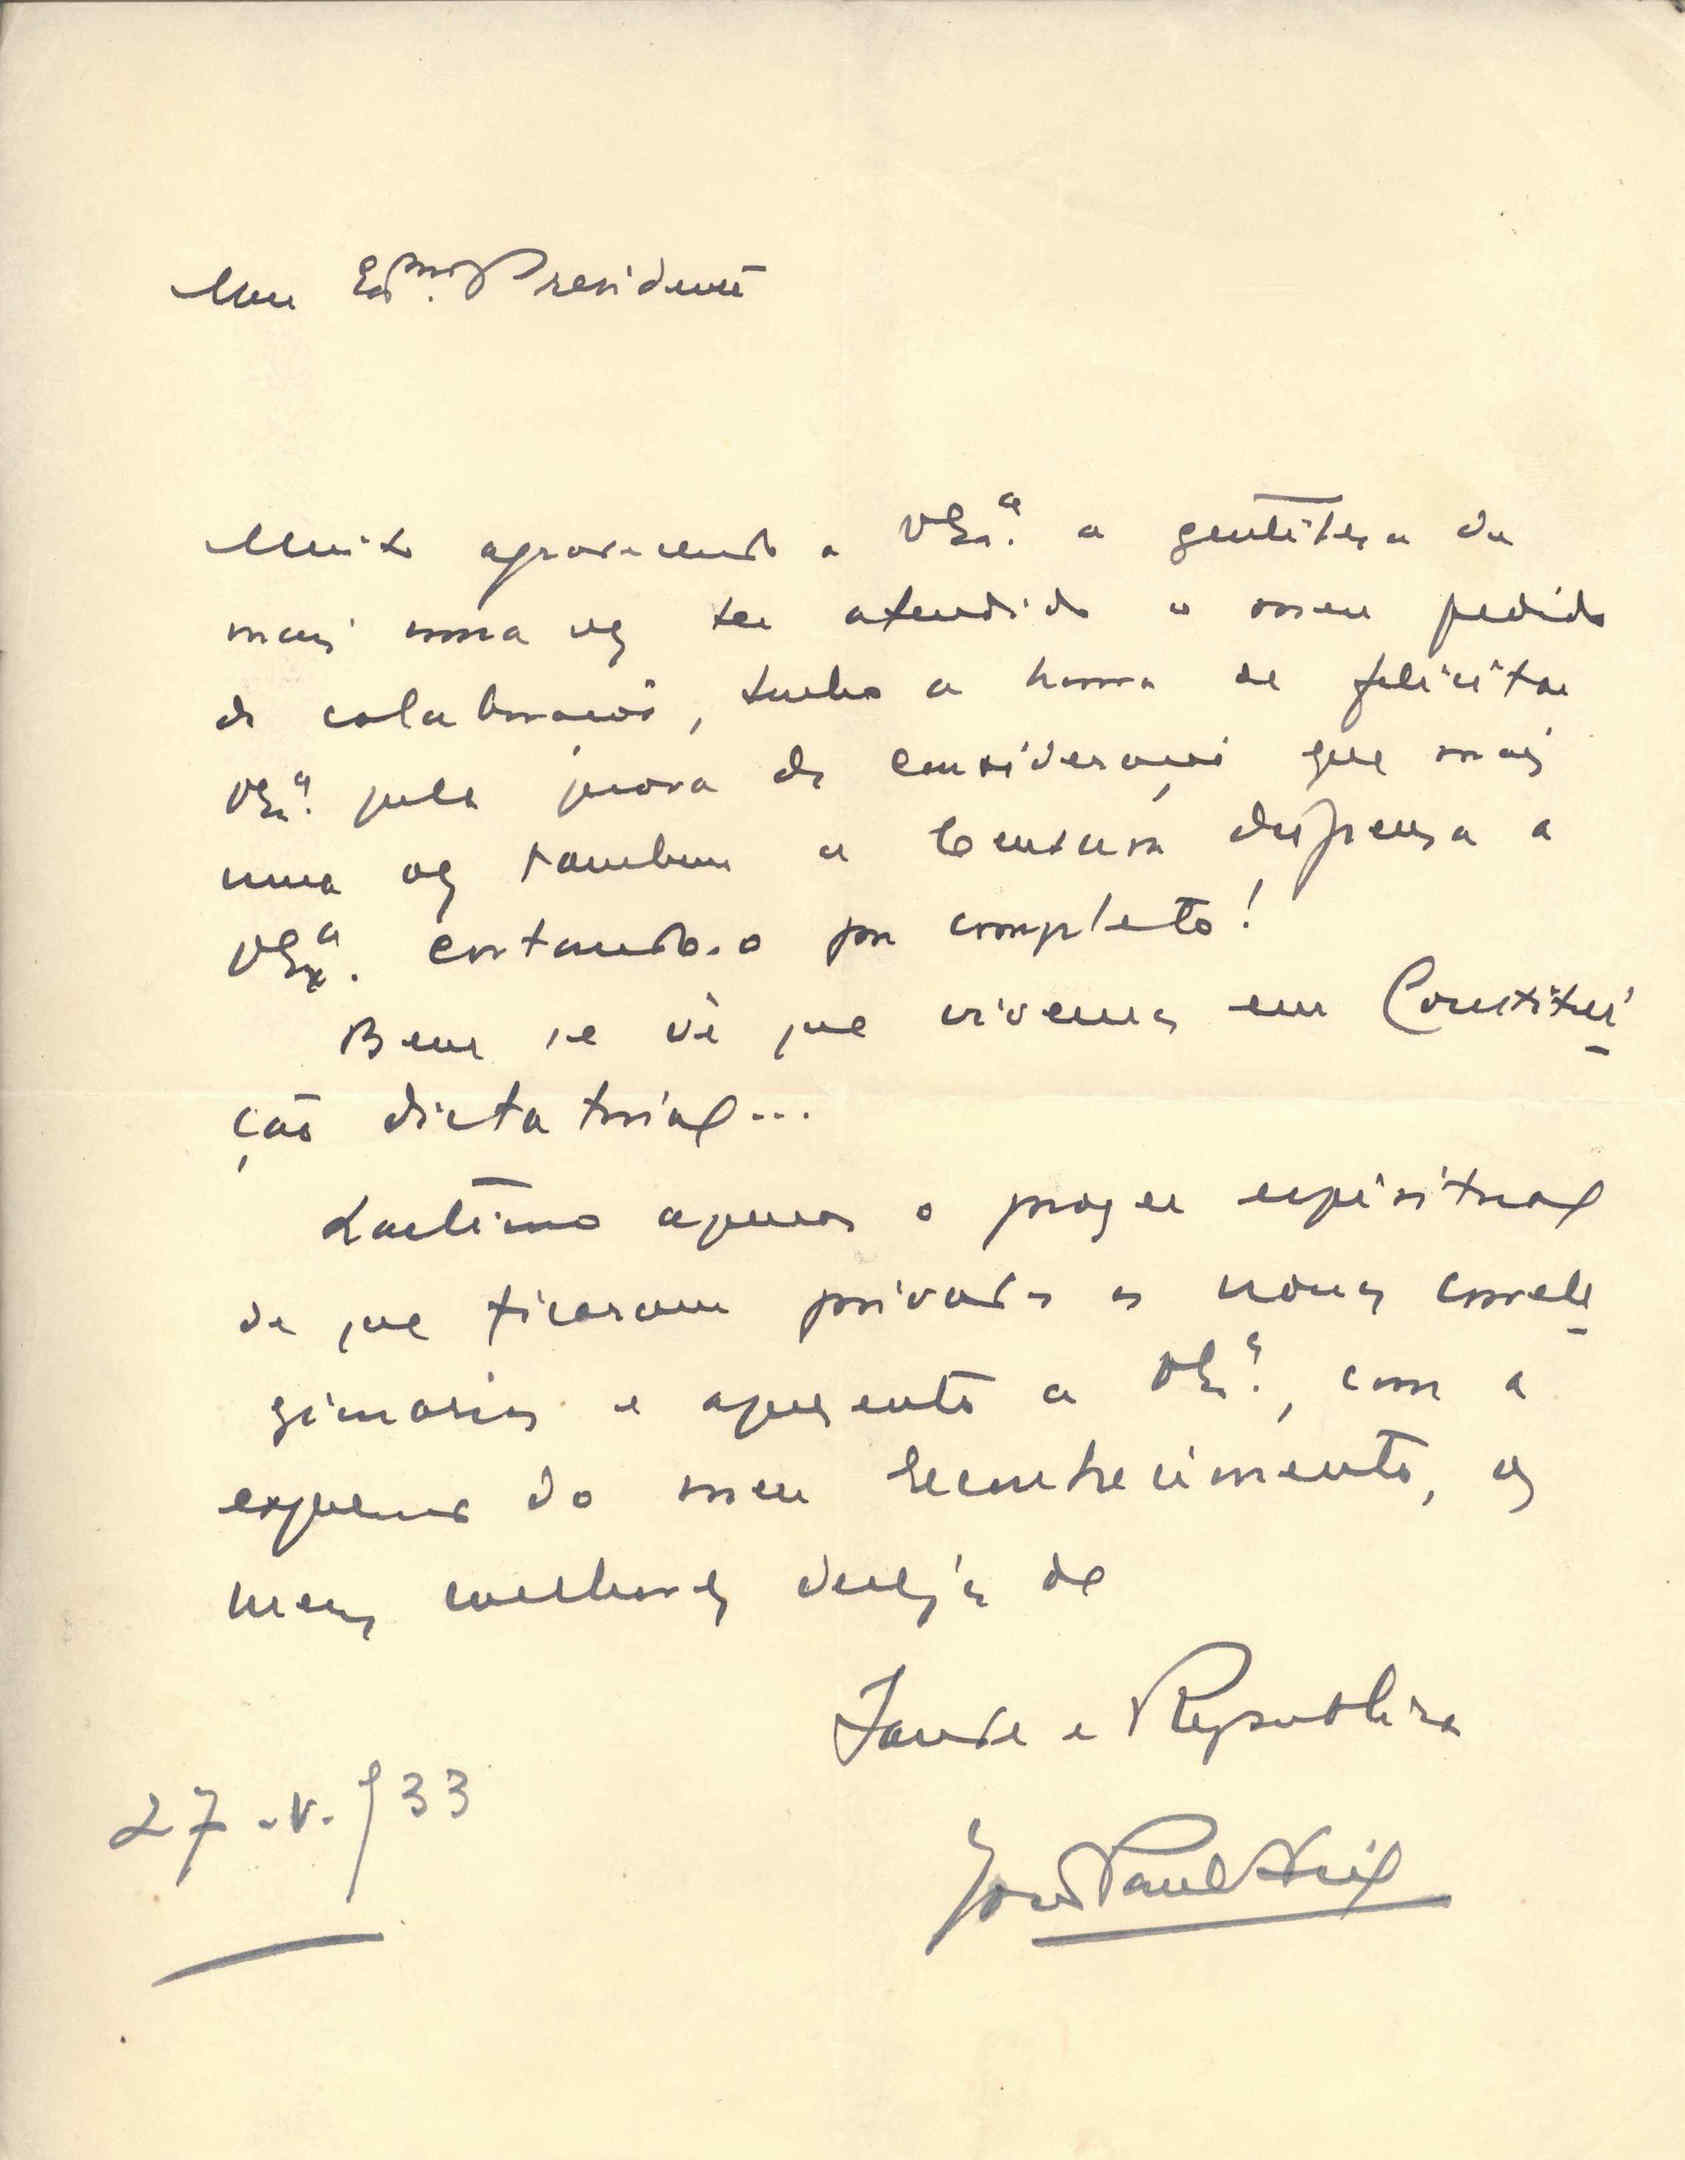 Meu Exmo. Presidente
Muito agradecendo a V. Exa. a gentileza de
mais uma vez ter atendido o meu pedido
de colaboração, tenho a honra de felicitar
V. Exa. pela prova de consideração que mais
uma vez tambem a Censura dispensa a
V. Exa. cortando-o por completo!
Bem se vê que vivemos em Constitui-
ção dictatorial...
Lastimo apenas o prazer espiritual
de que ficaram privados os nossos correli-
gionarios e apresento a V. Exa., com a
expressão do meu reconhecimento, os
meus melhores desejos de
Saude e Republica
27-V-933